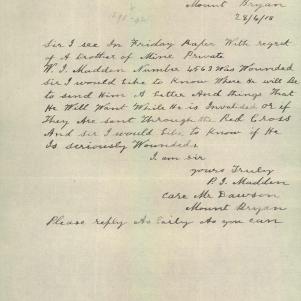 Mount Bryan
28/6/18
Sir I see In Friday Paper With regret
of A brother of Mine Private
W. J. Madden Number 4563 Was Wounded
Sir I would Like to Know Where He will be
to send Him A letter And things that
He Will Want While He is Invalised or if
They Are sent Through the Red Cross
And sir I would Like to know if He
Is seriously Wounded.
I am sir
yours Truly
P. J. Madden
care Mr Dawson
Mount Bryan
Please reply As Early As you can